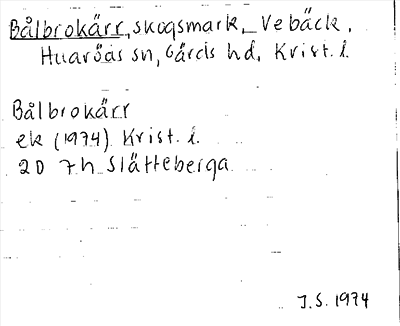 Bålbrokärr, skogsmark, Vebäck,
Huaröds sn, Gärds hd, Krist. l.
Bålbrokärr
ek (1974) Krist. l.
2D 7h Slätteberga
J.S. 1974